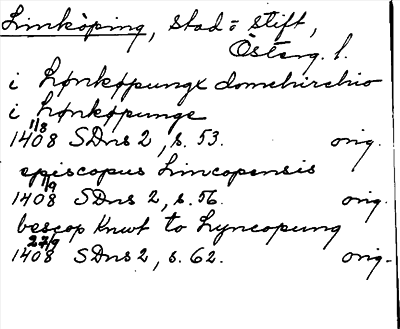 Linköping, stad o. stift,
Österg. l.
i Lønkøpungx domchirchio
i Lønkøpunge
1/8 1408 SDns 2, s. 53. orig.
episcopus Lincopensis
1/9 1408 SDns 2, s. 56. orig.
bescop Knut to Lyncopung
27/9 1408 SDns 2, s. 62. orig.